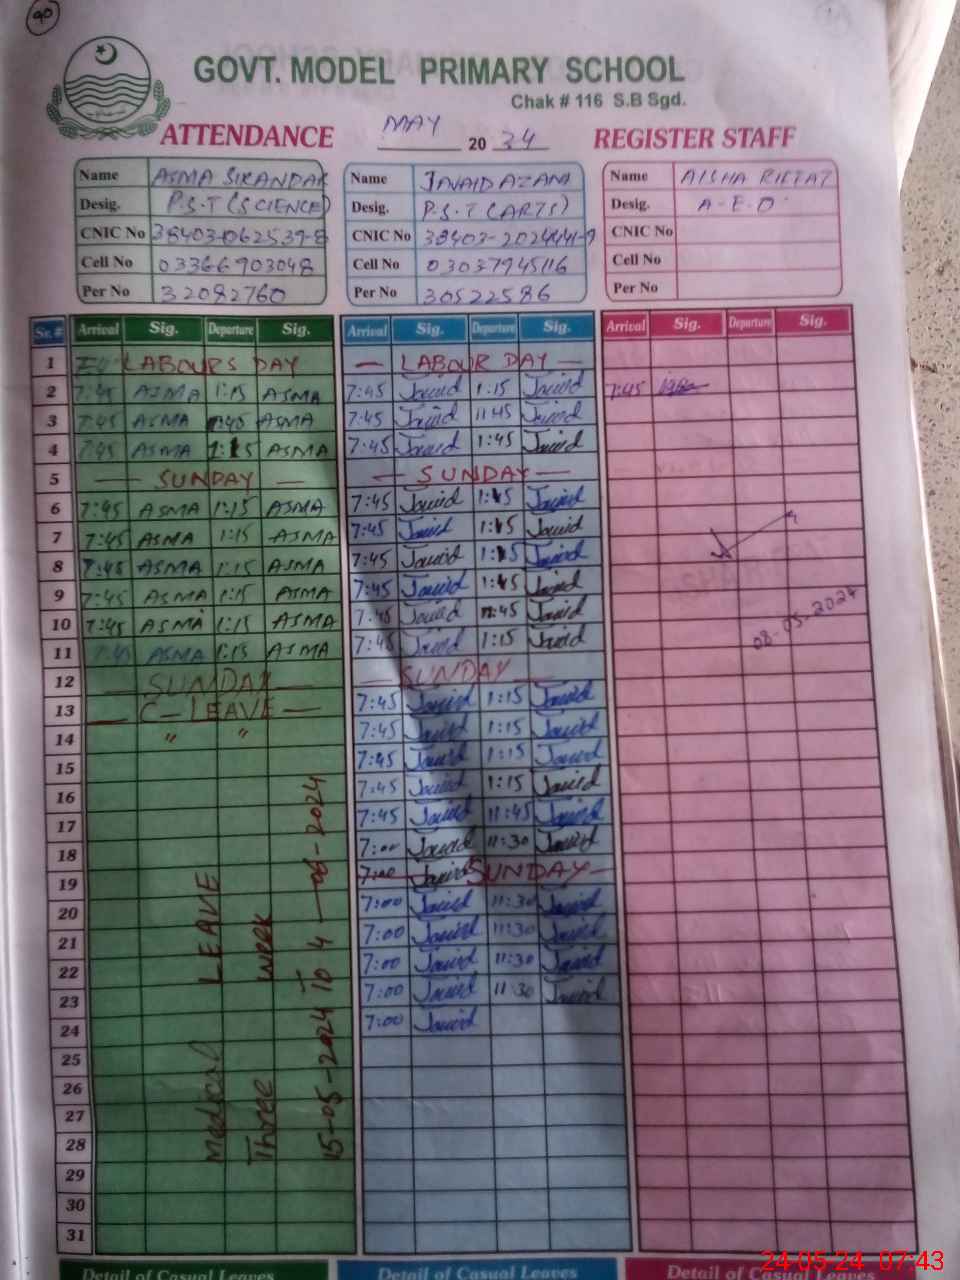 90
GOVT. MODEL PRIMARY SCHOOL
Chak # 116 S.B Sgd.
ATTENDANCE MAY 20 24 REGISTER STAFF
Name ASMA SIKANDAR Name JAVAID AZAM Name AISHA RIFFAT
Desig. P.S.T (SCIENCE) Desig. P.S.T (ARTS) Desig. A-E-O
CNIC No 38403-0625391-8 CNIC No CNIC No
Cell No 03366903048 Cell No 03037945116 Cell No
Per No 32082760 Per No 30522586 Per No
Sr.# Arrival Sig. Departure Sig. Arrival Sig. Departure Sig. Arrival Sig. Departure Sig.
1 LABOURS DAY — LABOUR DAY —
2 7:45 ASMA 1:15 ASMA 7:45 Javid 1:15 Javid 7:45
3 7:45 ASMA ASMA 7:45 Javid 11:45 Javid
4 7:45 ASMA 1:15 ASMA 7:45 Javid 1:45 Javid
5 — SUNDAY — — SUNDAY —
6 7:45 ASMA 1:15 ASMA 7:45 Javid 1:15 Javid
7 7:45 ASMA 1:15 ASMA 7:45 Javid 1:15 Javid
8 7:45 ASMA 1:15 ASMA 7:45 Javid 1:15 Javid
9 7:45 ASMA 1:15 ASMA 7:45 Javid Javid
10 7:45 ASMA 1:15 ASMA 7:45 Javid 11:45 Javid
11 7:45 ASMA 1:15 ASMA 7:45 Javid 1:15 Javid
12 — SUNDAY — — SUNDAY —
13 — C-LEAVE — 7:45 Javid 1:15 Javid
14 " " 7:45 Javid 1:15 Javid
15 7:45 Javid 1:15 Javid
16 7:45 Javid 1:15 Javid
17 7:45 Javid 11:45 Javid
18 7:00 Javid 11:30 Javid
19 7:00 Javid SUNDAY —
20 7:00 Javid 11:30 Javid
21 7:00 Javid 11:30 Javid
22 7:00 Javid 11:30 Javid
23 7:00 Javid 11:30 Javid
24 7:00 Javid
25
26
27
28
29
30
31
Medical LEAVE
Three Week
15-05-2024 To 4-06-2024
08-05-2024
Detail of Casual Leaves Detail of Casual Leaves Detail of Casual Leaves
24-05-24 07:43